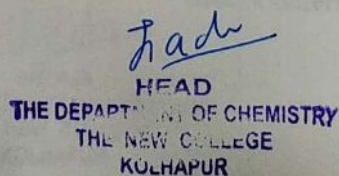 HEAD
THE DEPARTMENT OF CHEMISTRY
THE NEW COLLEGE
KOLHAPUR